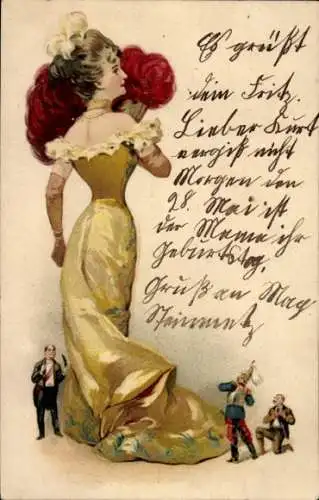 Es grüßt
dem Fritz.
Lieber Kurt
vergiß nicht
Morgen den
28. Mai ist
der Mama ihr
Geburtstag.
Gruß an Max
Steinmetz